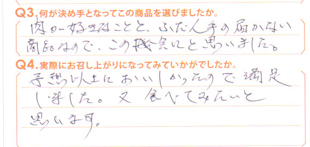 Q3.何が決め手となってこの商品を選びましたか。
肉が好きなことと、ふだん手の届かない
商品なので、この機会にと思いました。
Q4.実際にお召し上がりになってみていかがでしたか。
予想以上においしかったので満足
しました。又食べてみたいと
思います。